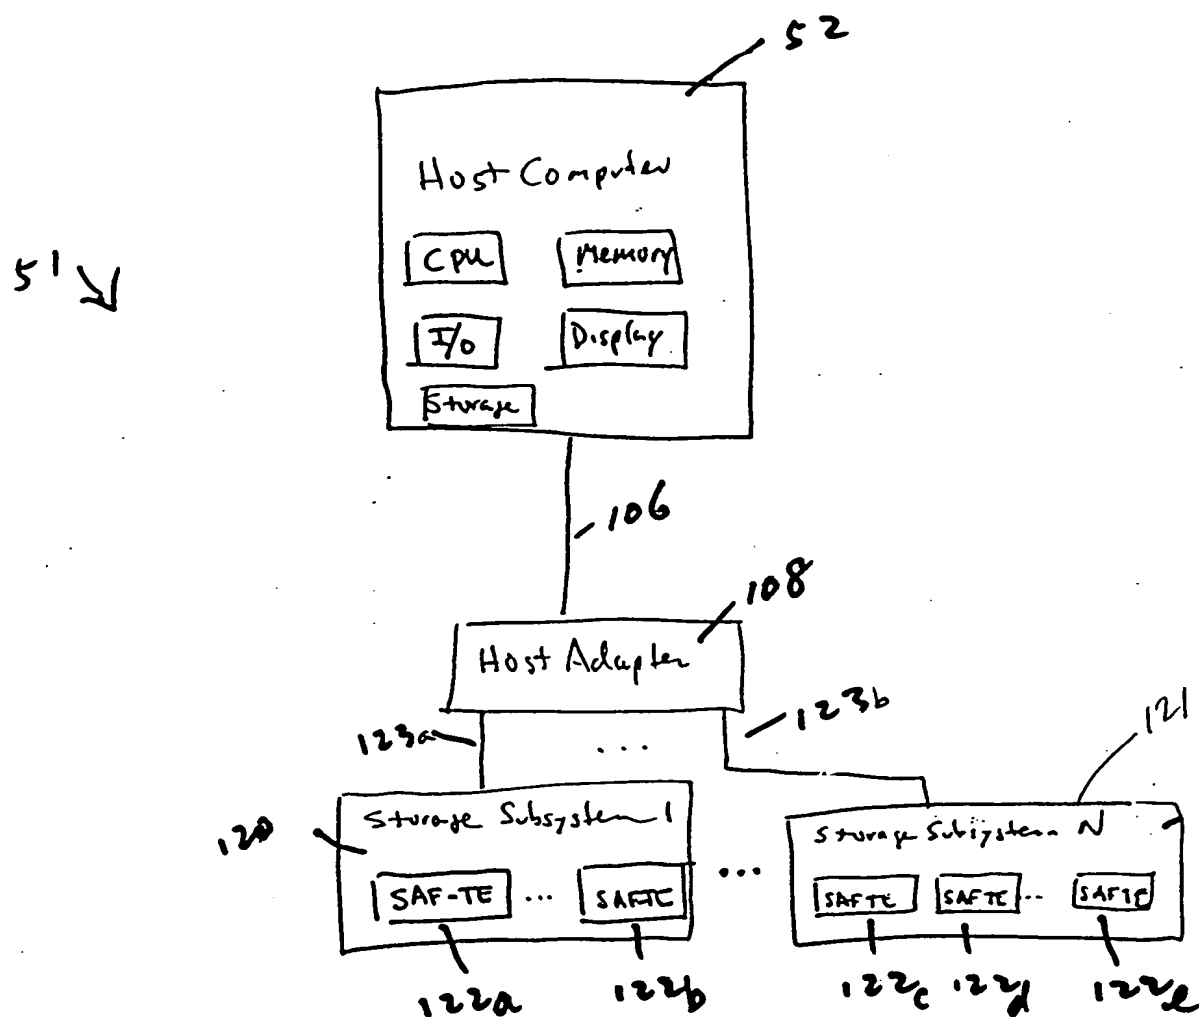 52
Host Computer
CPU
Memory
51
I/O
Display
Storage
106
108
Host Adapter
123a
...
123b
121
120
Storage Subsystem 1
...
Storage Subsystem N
SAF-TE ... SAFTE
SAFTE SAFTE ... SAFTE
122a 122b 122c 122d 122e